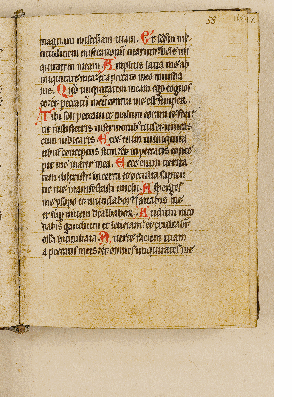 magnam misericdiam tuam. Et scdm ml
titudinem miserationum tuarum dele ini
quitatem meam. Amplius laua me ab
iniquitate mea et a peccato meo munda
me. Qm iniquitatem meam ego cognos
co et peccatu meu contra me est semper.
Tibi soli peccaui et malum coram te feci ut
iustificeris in sermonib tuis et uincas
cum iudicaris. Ecce enim in iniquita
tibus conceptus sum et in peccatis conce
pit me mater mea. Ecce enim uerita
tem dilexisti incerta et occulta sapien
tie tue manifestasti michi. Asperges
me ysopo et mundabor lauabis me
et sup niuem dealbabor. Auditui meo
dabis gaudium et leticiam et exultabut
ossa humiliata. Auerte faciem tuam
a peccatis meis et omnes iniquitates me